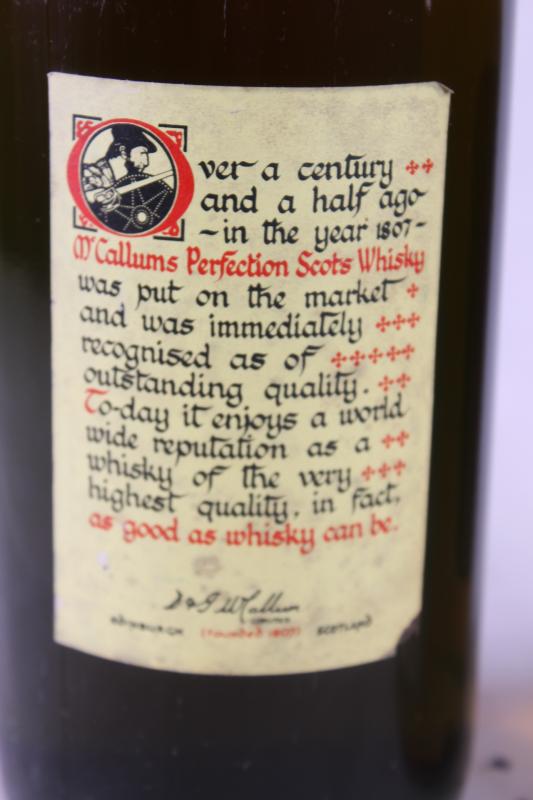 Over a century
and a half ago
~ in the year 1807 ~
McCallums Perfection Scots Whisky
was put on the market
and was immediately
recognised as of
outstanding quality.
To-day it enjoys a world
wide reputation as a
whisky of the very
highest quality, in fact,
as good as whisky can be.
D & J McCallum
LIMITED
EDINBURGH (Founded 1807) SCOTLAND